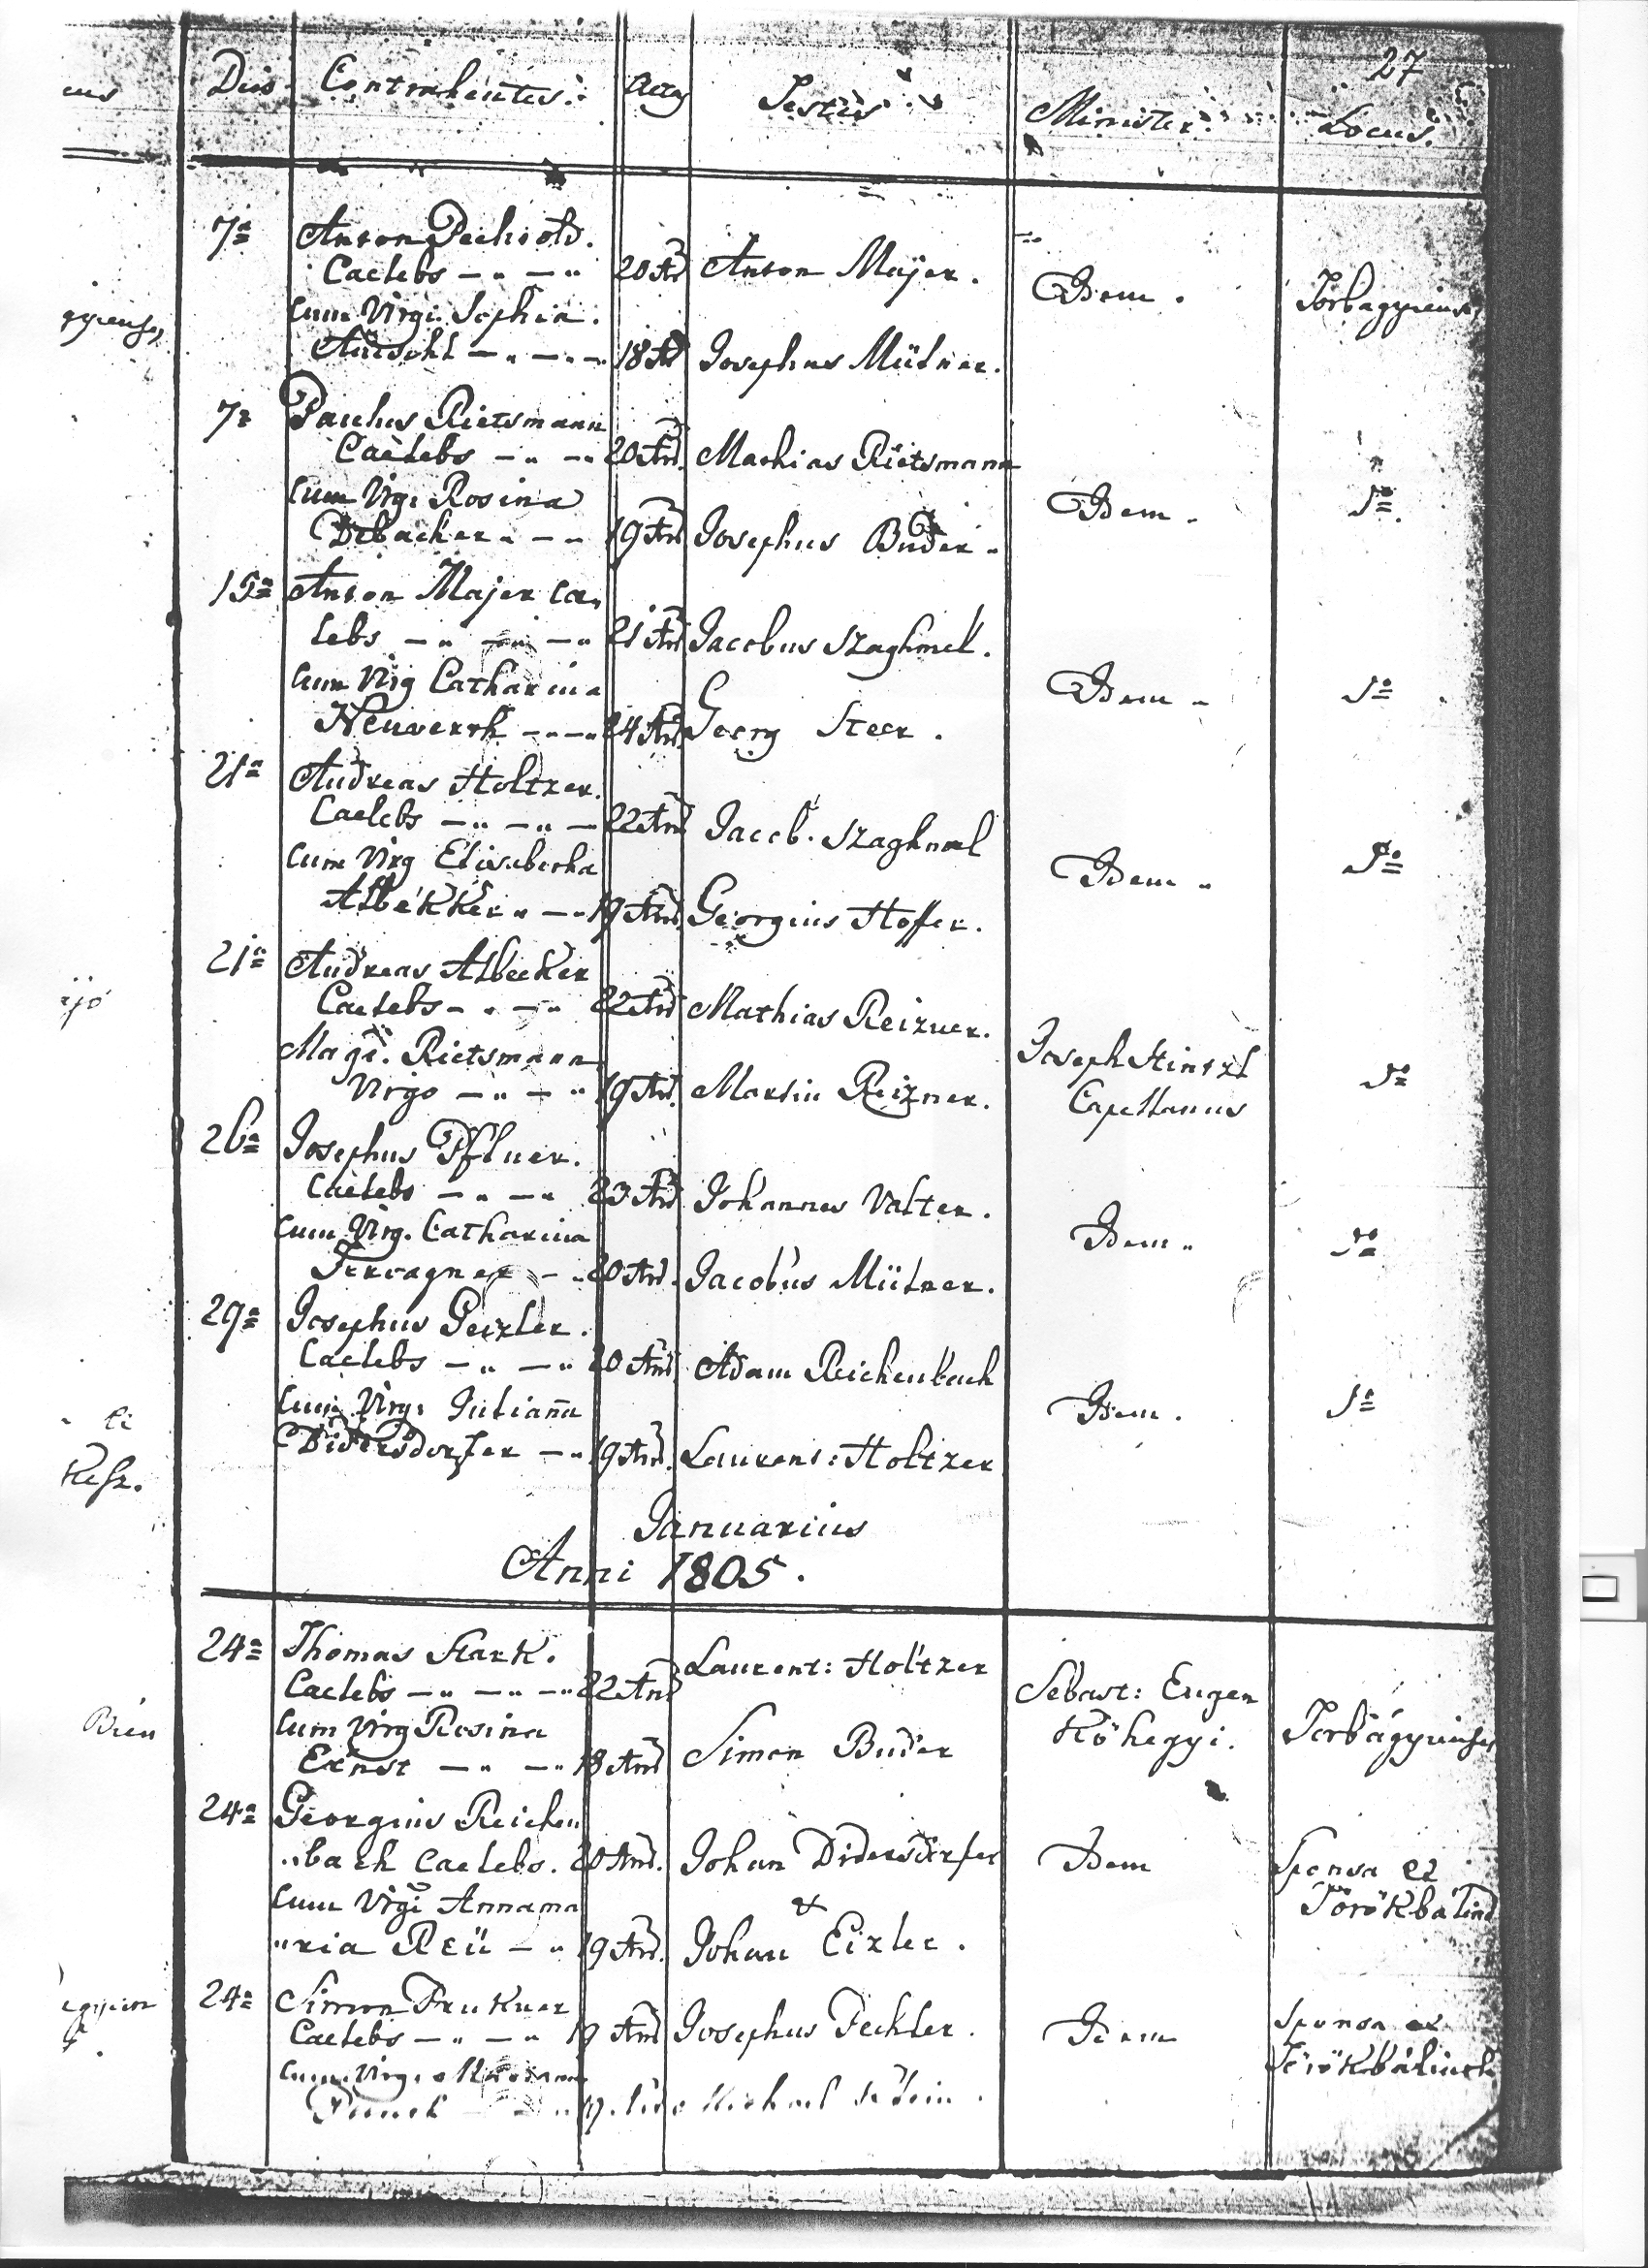 27
Dies Contrahentes: Aetas Testes Minister Locus.
7a Anton Pechtold.
Caelebs 20 An Anton Majer. Idem. Torbagyiens
cum Virgi. Sophia.
18 An Josephus Mütner.
7a Paulus Rietsmann
Caelebs 20 An Mathias Rietsmann
cum Virg: Rosina Idem. do
19 An Josephus Buder
15a Anton Majer Cae
lebs 21 An Jacobus Szaghmel.
cum Virg Catharina Idem do
Neuwerth 24 An Georg Steer.
21a Andreas Holtzer.
Caelebs 22 An Jacob. Szaghmel
cum Virg Elisabetha Idem do
Albekker 19 An Georgius Hoffer.
21a Andreas Albecker
Caelebs 22 An Mathias Reizner.
Magd. Rietsmann Joseph Hintzl do
Virgo 19 An. Martin Reizner. Capellanus
26a Josephus Pfluer.
Caelebs 23 An Johannes Valter.
cum Virg. Catharina Idem do
20 An. Jacobus Mütner.
29a Josephus Geizler.
Caelebs 20 An Adam Reichenbach
cum Virg: Juliana Idem. do
Didersdorfer 19 An. Laurent: Holtzer
Januarius
Anni 1805.
24a Thomas Stark. Laurent: Holtzer
Caelebs 22 An Sebast: Eugen
cum Virg Rosina Kőhegyi. Torbágyienses
Ernst 18 An Simon Buder
24a Georgius Reichen
"bach Caelebs. 20 An. Johan Didersdorfer Idem Sponsa ex
cum Virgi Annama & Törökbálind
"ria Reü 19 An. Johan Eizler.
24a Simon Frukner
Caelebs 19 An Josephus Feckler. Idem Sponsa ex
cum Virg: Törökbálinth
19. Michael